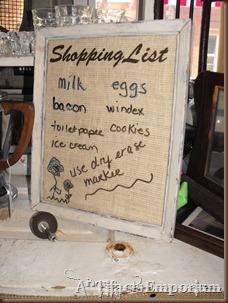 Shopping List
milk eggs
bacon windex
toilet paper cookies
ice cream
use dry erase
marker
A Tilla's Emporium